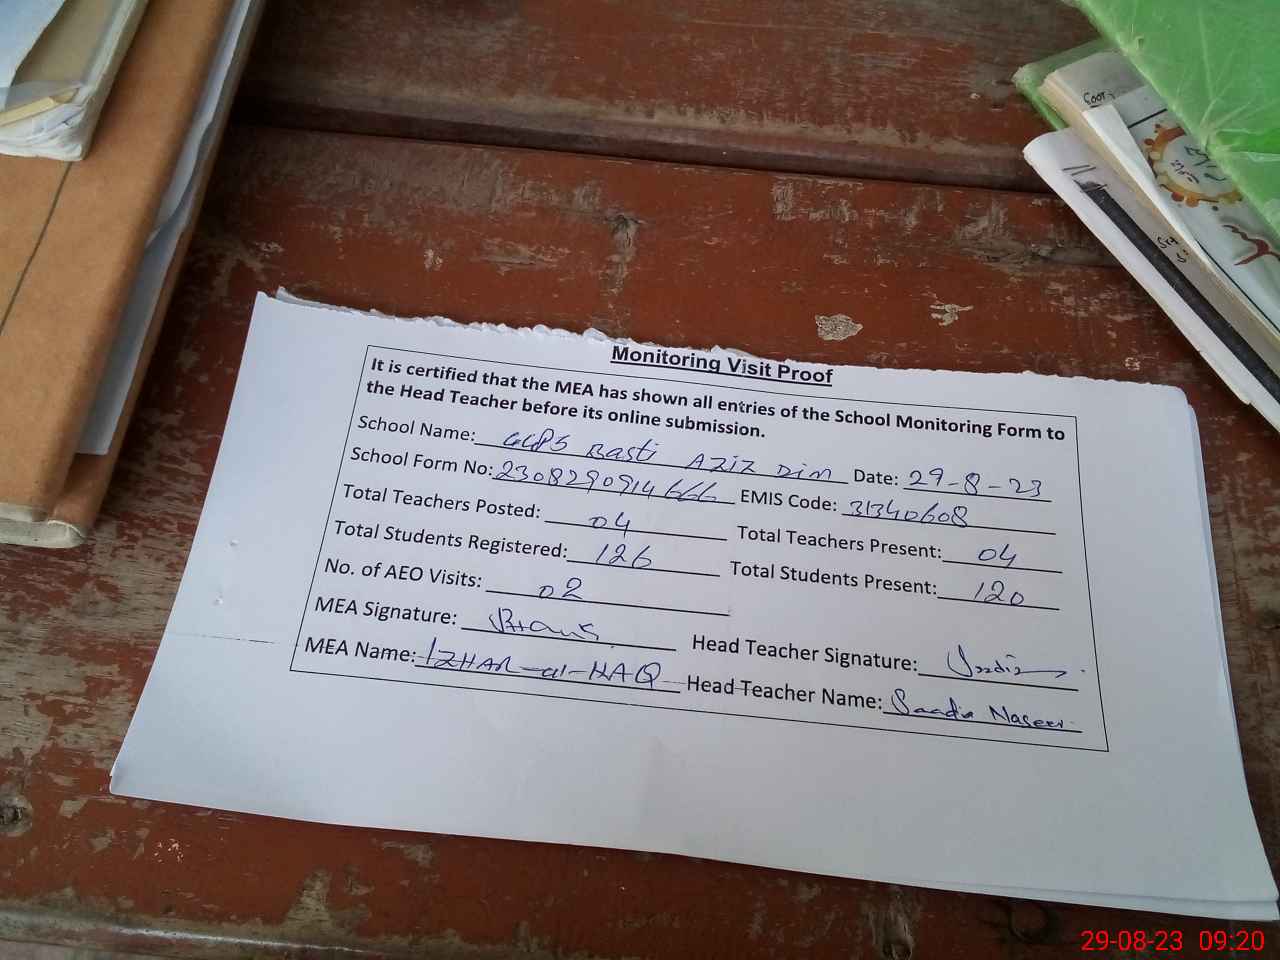 Monitoring Visit Proof
It is certified that the MEA has shown all entries of the School Monitoring Form to
the Head Teacher before its online submission.
School Name: GGPS Basti AZIZ Dim Date: 29-8-23
School Form No: 2308290914666 EMIS Code: 31340608
Total Teachers Posted: 04 Total Teachers Present: 04
Total Students Registered: 126 Total Students Present: 120
No. of AEO Visits: 02
MEA Signature: Head Teacher Signature: Saadia
MEA Name: IZHAR-ul-HAQ Head Teacher Name: Saadia Naseer.
29-08-23 09:20